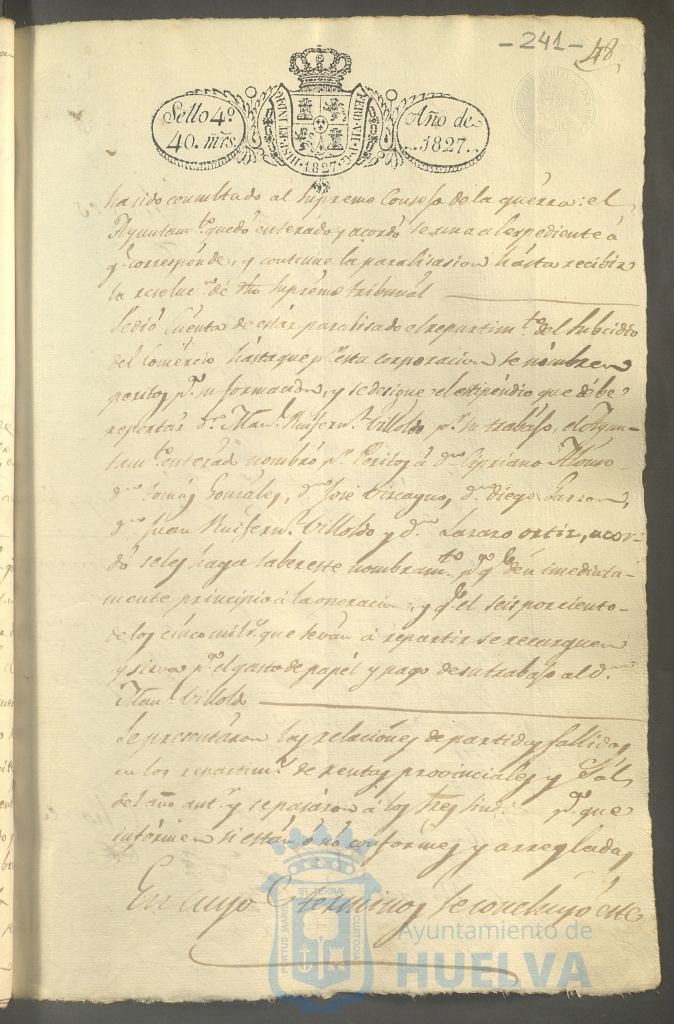 -241- 48
Sello 4º
40. mrs.
HISP. ET IND. R. FERD. VII. D. G.
1827
Año de
1827.
ha sido consultado al Supremo Consejo de la guerra: el
Ayuntamto. quedó enterado y acordó se una al expediente á
q. corresponde, y continue la paralisasion hasta recibir
la resoluc.on de dho Supremo tribunal
Se dió Cuenta de estár paralisado el repartimto. del Subcidio
del Comercio hasta que pr. esta corporacion se nombren
peritos pa. su formacion, y se designe el estipéndio que débe
reportar Dn. Manl. Ruifernz. Villoldo pr. su trabajo, el Ayun-
tamto. enterado nombró pr. Peritos á dn. Cipriano Alonso
dn. Tomás Gonzáles, dn. José Viscayno, dn. Diego
dn. Juan Ruifernz. Villoldo y dn. Lazaro ortiz, acor-
dó se les haga saber este nombramto. pa. qe. dén imediata-
mente principio á la operacion, y qe. el seis por ciento
de los cinco mil rs. que se ván á repartir se recarguen
y sirva pa. el gasto de papél y pago de su trabajo al dn.
Manl. Villoldo
Se presentáron las relaciónes de partidas fallidas
en los repartimtos. de rentas provinciales y Sal
del año antr. y se pasáron á los Sres pa. que
infórmen si están ó nó conformes y arregladas
En cuyos terminos se concluyó este
PORTUS MARIS ET TERRAE CUSTODIA
Ayuntamiento de
HUELVA